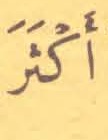 أَكْثَرَ